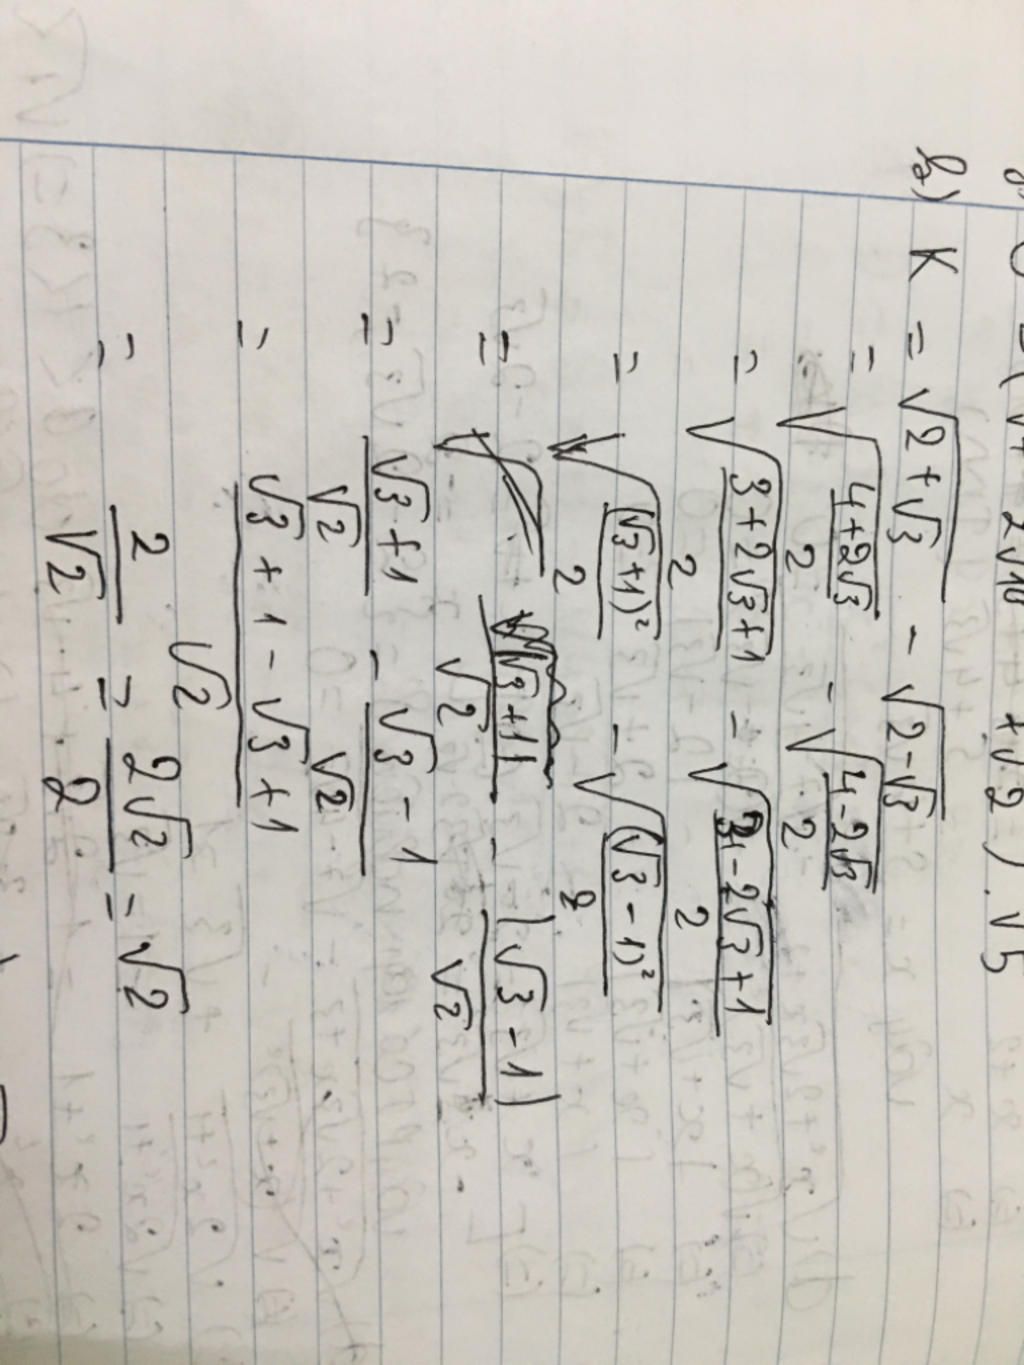 2√10 + √2 ) . √5
b) K = √(2+√3) - √(2-√3)
= √((4+2√3)/2) - √((4-2√3)/2)
= √((3+2√3+1)/2) - √((3-2√3+1)/2)
= √((√3+1)²/2) - √((√3-1)²/2)
= |√3+1|/√2 - |√3-1|/√2
= (√3+1)/√2 - (√3-1)/√2
= (√3+1-√3+1)/√2
= 2/√2 = 2√2/2 = √2